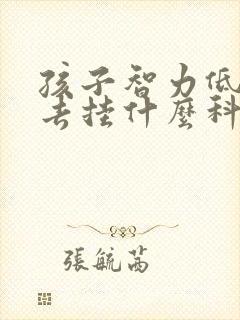 孩子智力低
去挂什麼科
張毓芮